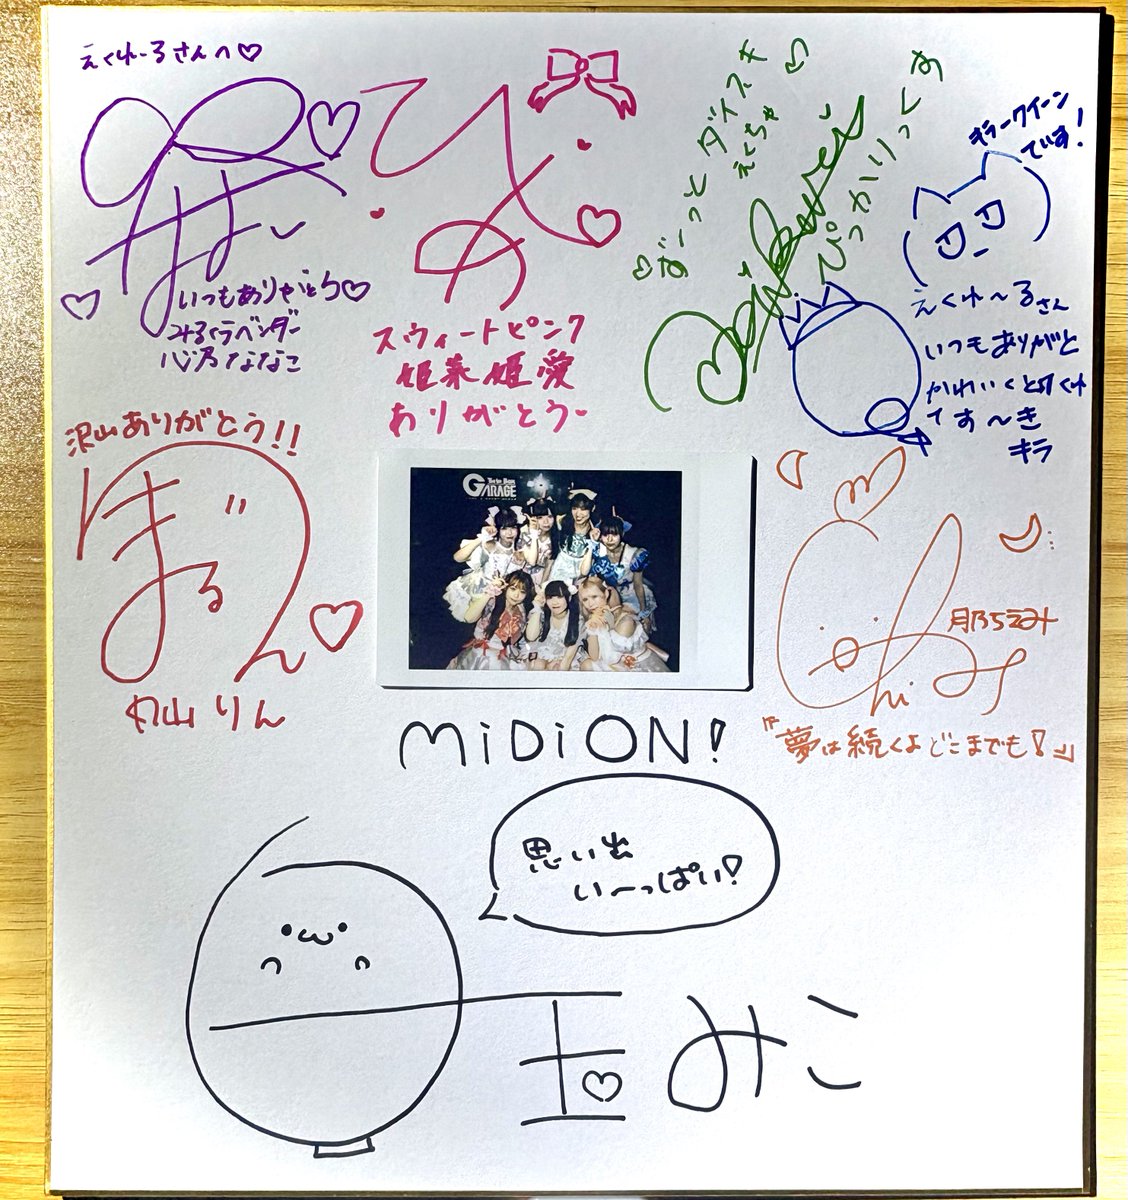 えくれーるさんへ♡
いつもありがとう♡
みるくラベンダー
心乃ななこ
ひめ
スウィートピンク
姫菜姫愛
ありがとう
ずーっと
ダイスキ
えくちゃ
ぴっかりっくす
キラークイーン
でぃす!
えくれ〜るさん
いつもありがと
かわいくとれくれ
てす〜き
キラ
沢山ありがとう!!
まるりん
丸山りん
THE BOX
GARAGE
Chiemi
月乃ちえみ
『夢は続くよどこまでも!』
MiDiON!
思い出
いーっぱい!
玉みこ